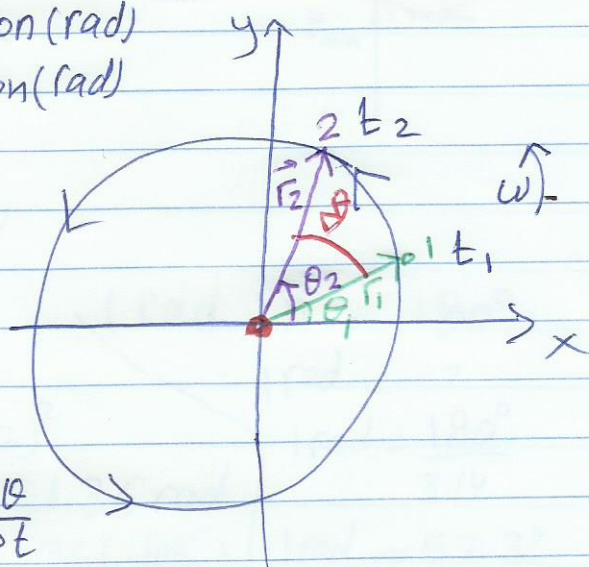 on(rad)
on(rad)
y
2 t₂
r⃗₂
Δθ
ω
1 t₁
θ₂
r₁
θ₁
x
θ
t